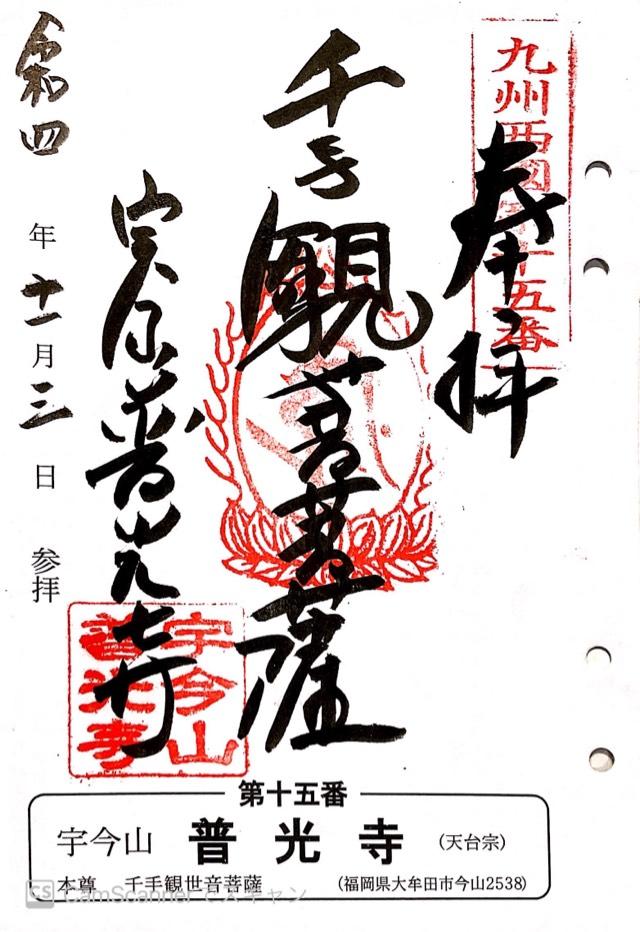 九州西国第十五番
奉拝
千手観世音菩薩
普光寺
宇今山
普光寺
令和四年十一月三日参拝
第十五番
宇今山 普光寺 (天台宗)
本尊 千手観世音菩薩 (福岡県大牟田市今山2538)
CS CamScanner でスキャン